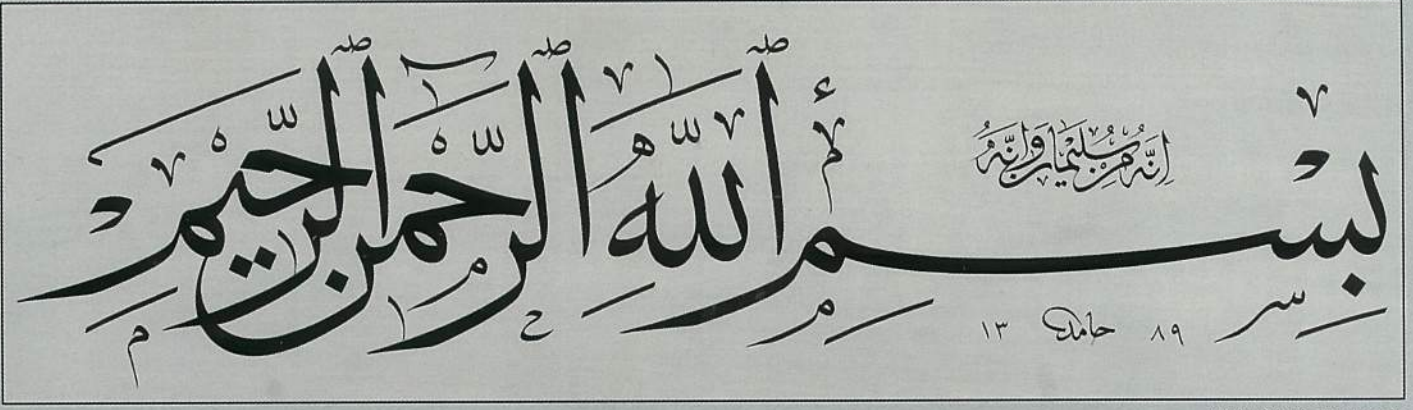 بِسْمِ اللّٰهِ الرَّحْمٰنِ الرَّحِيْمِ
اِنَّهُ مِنْ سُلَيْمَانَ وَاِنَّهُ
١٣ حامد ٨٩